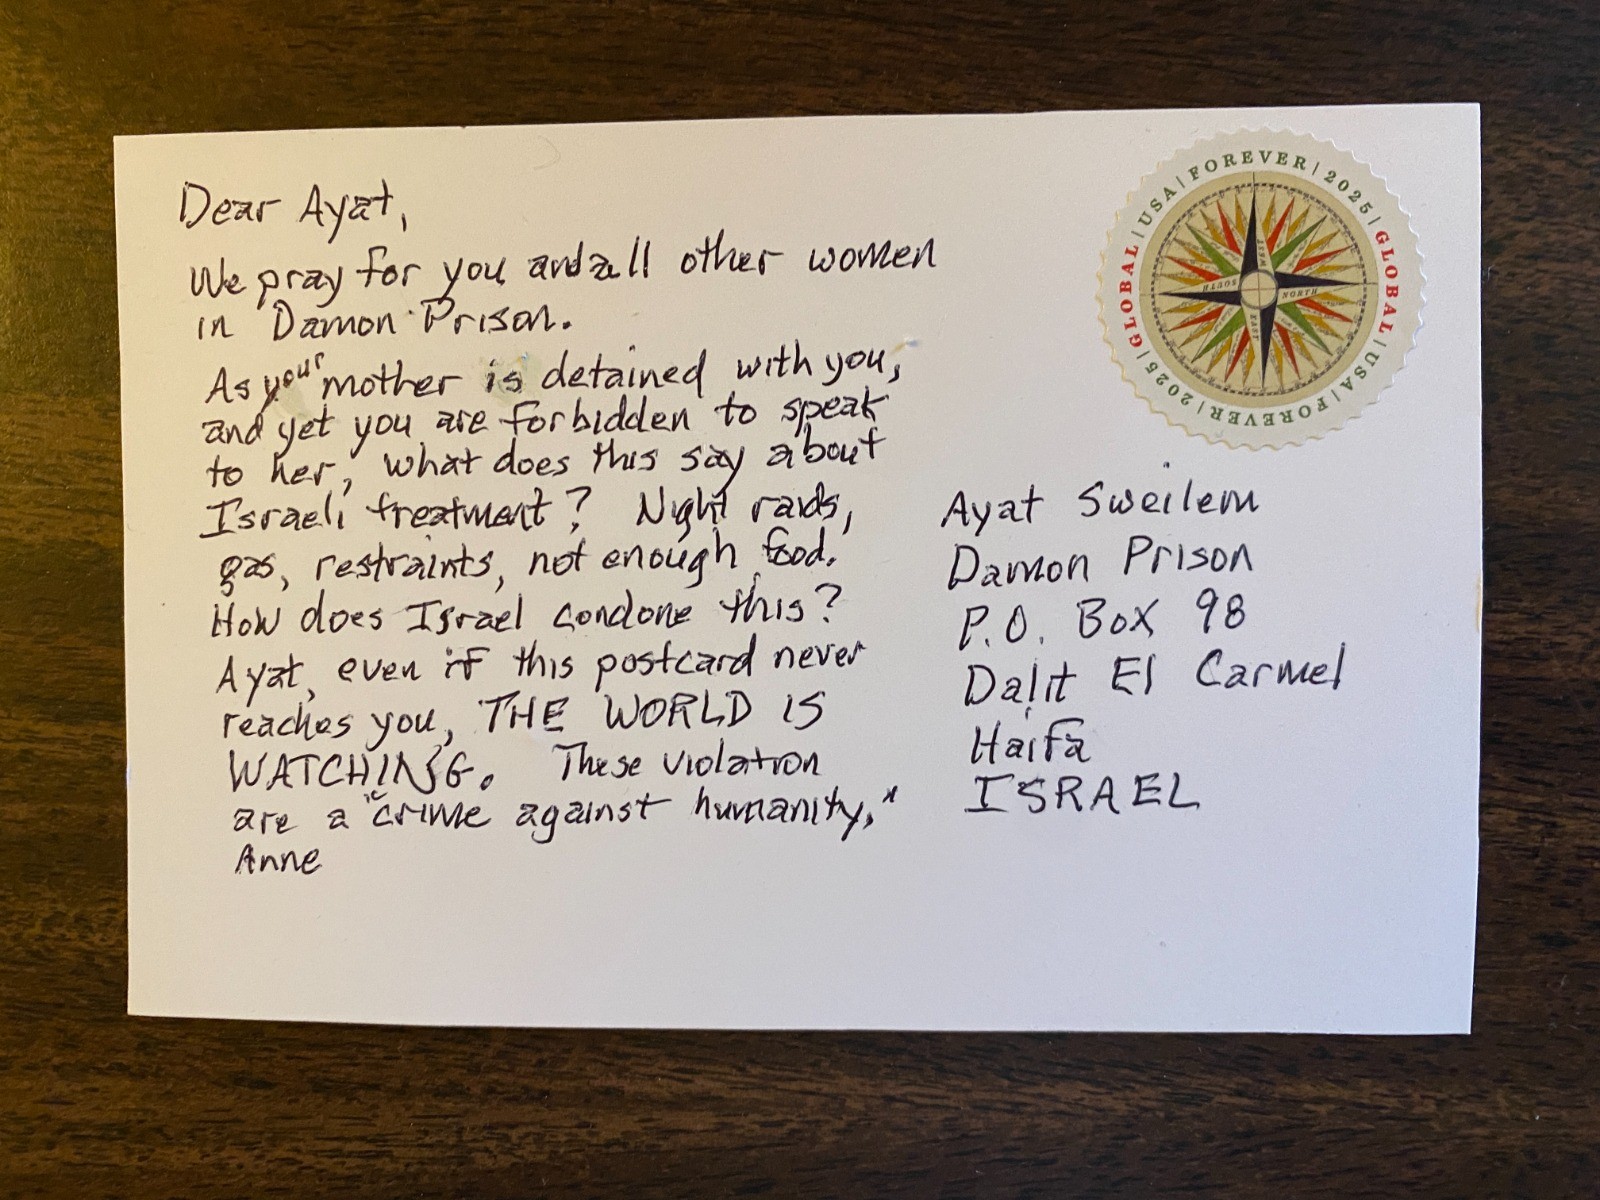 Dear Ayat,
We pray for you and all other women
in Damon Prison.
As your mother is detained with you,
and yet you are forbidden to speak
to her, what does this say about
Israeli treatment? Night raids,
gas, restraints, not enough food.
How does Israel condone this?
Ayat, even if this postcard never
reaches you, THE WORLD IS
WATCHING. These violation
are a "crime against humanity,"
Anne
GLOBAL | USA | FOREVER | 2025 | GLOBAL | USA | FOREVER | 2025 |
WEST
SOUTH
NORTH
EAST
Ayat Sweilem
Damon Prison
P.O. Box 98
Dalit El Carmel
Haifa
ISRAEL